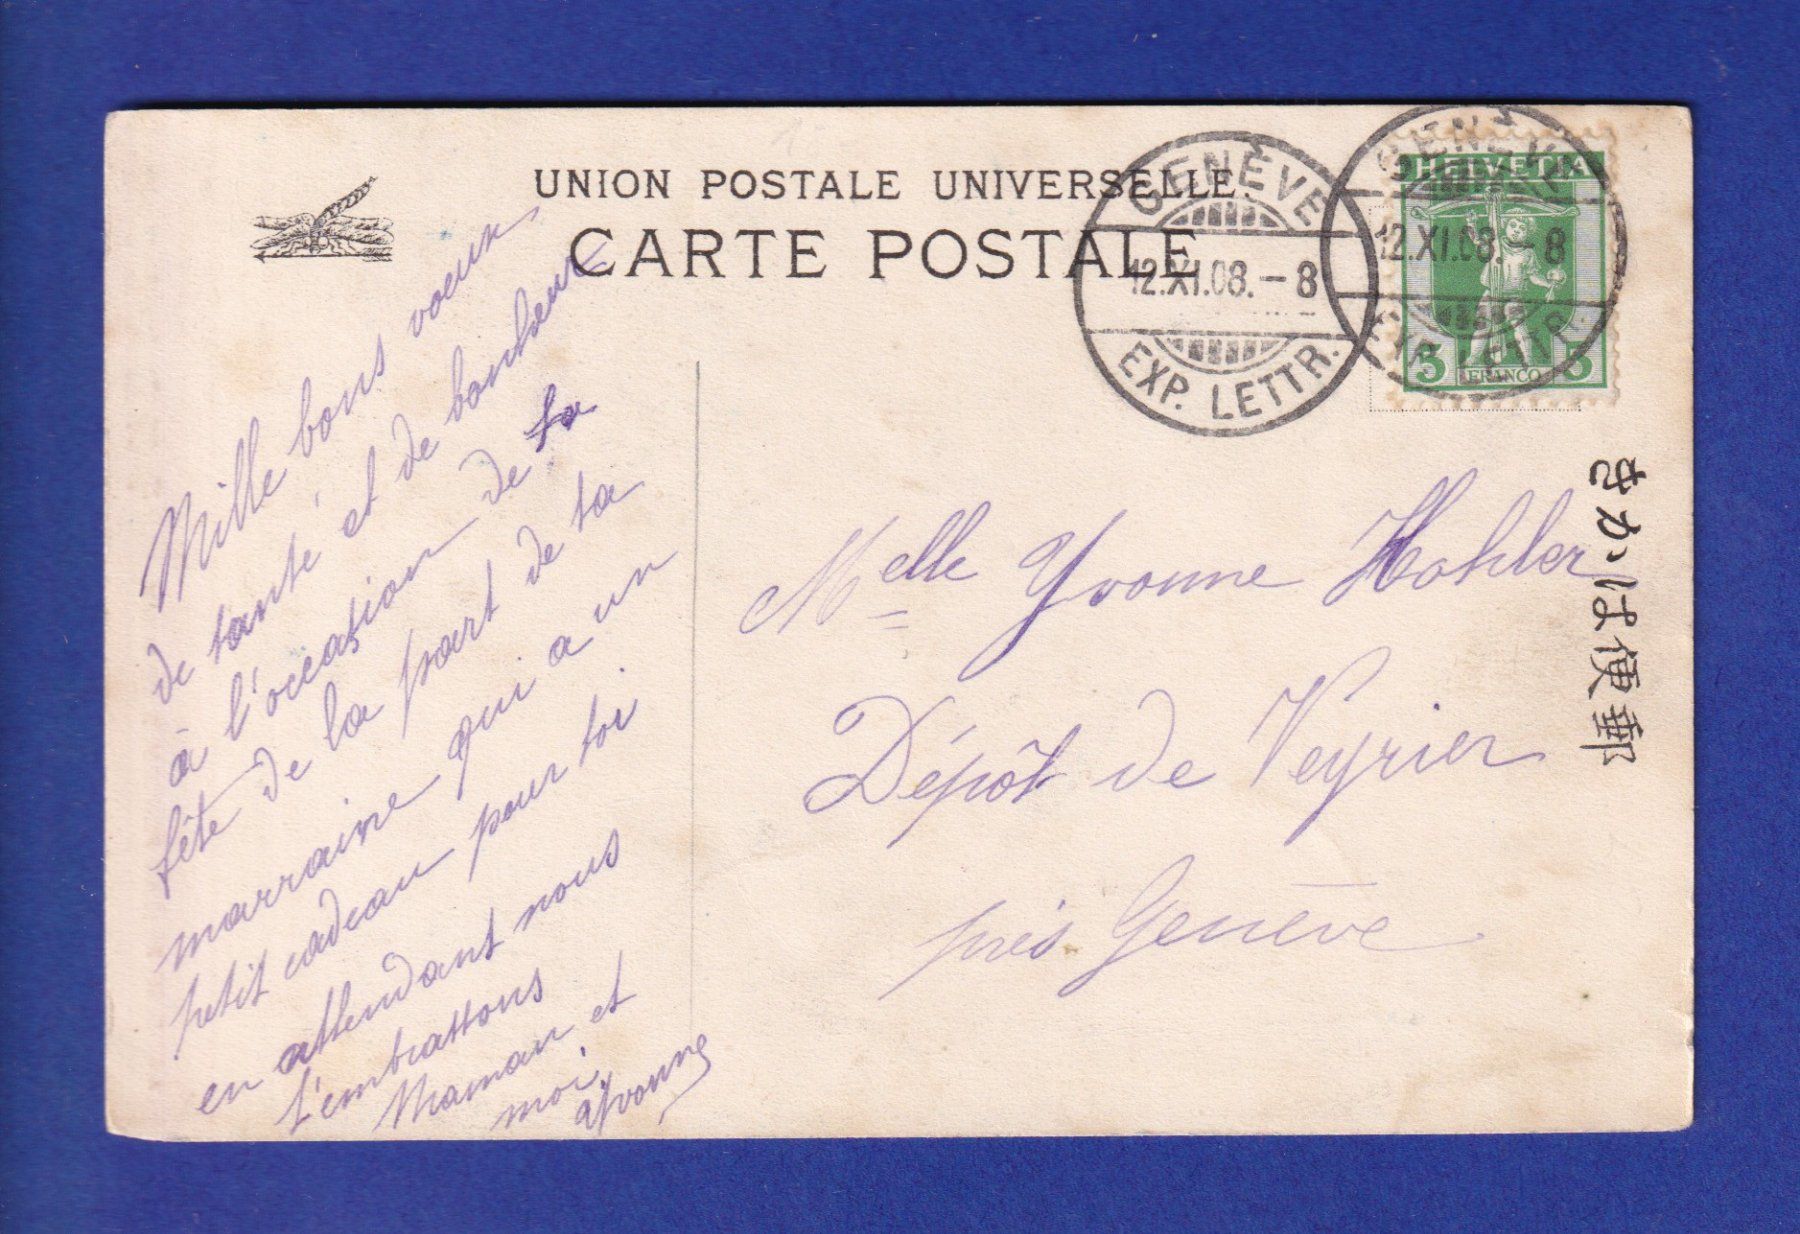 UNION POSTALE UNIVERSELLE.
CARTE POSTALE
GENÈVE
12.XI.08.–8
EXP. LETTR.
GENÈVE
12.XI.08.–8
EXP. LETTR.
HELVETIA
5 FRANCO 5
きかは便郵
Mille bons voeux
de santé et de bonheur
à l'occasion de ta
fête de la part de ta
marraine qui a un
petit cadeau pour toi
en attendant nous
t'embrassons
Maman et
moi.
Yvonne
Melle Yvonne Hohler
Dépôt de Veyrier
près Genève